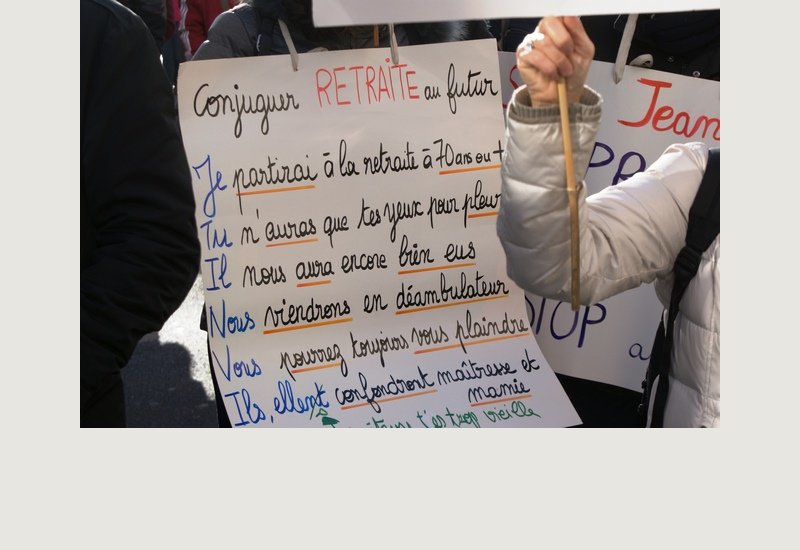 Conjuguer RETRAITE au futur
Je partirai à la retraite à 70 ans ou +
Tu n'auras que tes yeux pour pleur
Il nous aura encore bien eus
Nous viendrons en déambulateur
Vous pourrez toujours vous plaindre
Ils, ellent confondront maîtresse et
mamie
t'es trop vieille
Jean
STOP